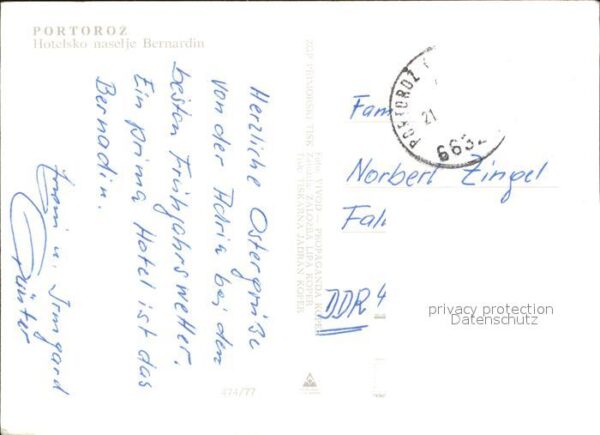 PORTOROŽ
Hotelsko naselje Bernardin
Herzliche Ostergrüße
von der Adria bei den
besten Frühjahrswetter.
Ein prima Hotel ist das
Bernadin.
u. Irmgard
Günter
474/77
ZGP PRIMORSKI TISK
Foto: VIVOD — PROPAGANDA KOPER
Založila: ZALOŽBA LIPA KOPER
Tisk: TISKARNA JADRAN KOPER
PORTOROŽ
21
6632
Fam
Norbert Zingel
Fal
DDR 4
privacy protection
Datenschutz